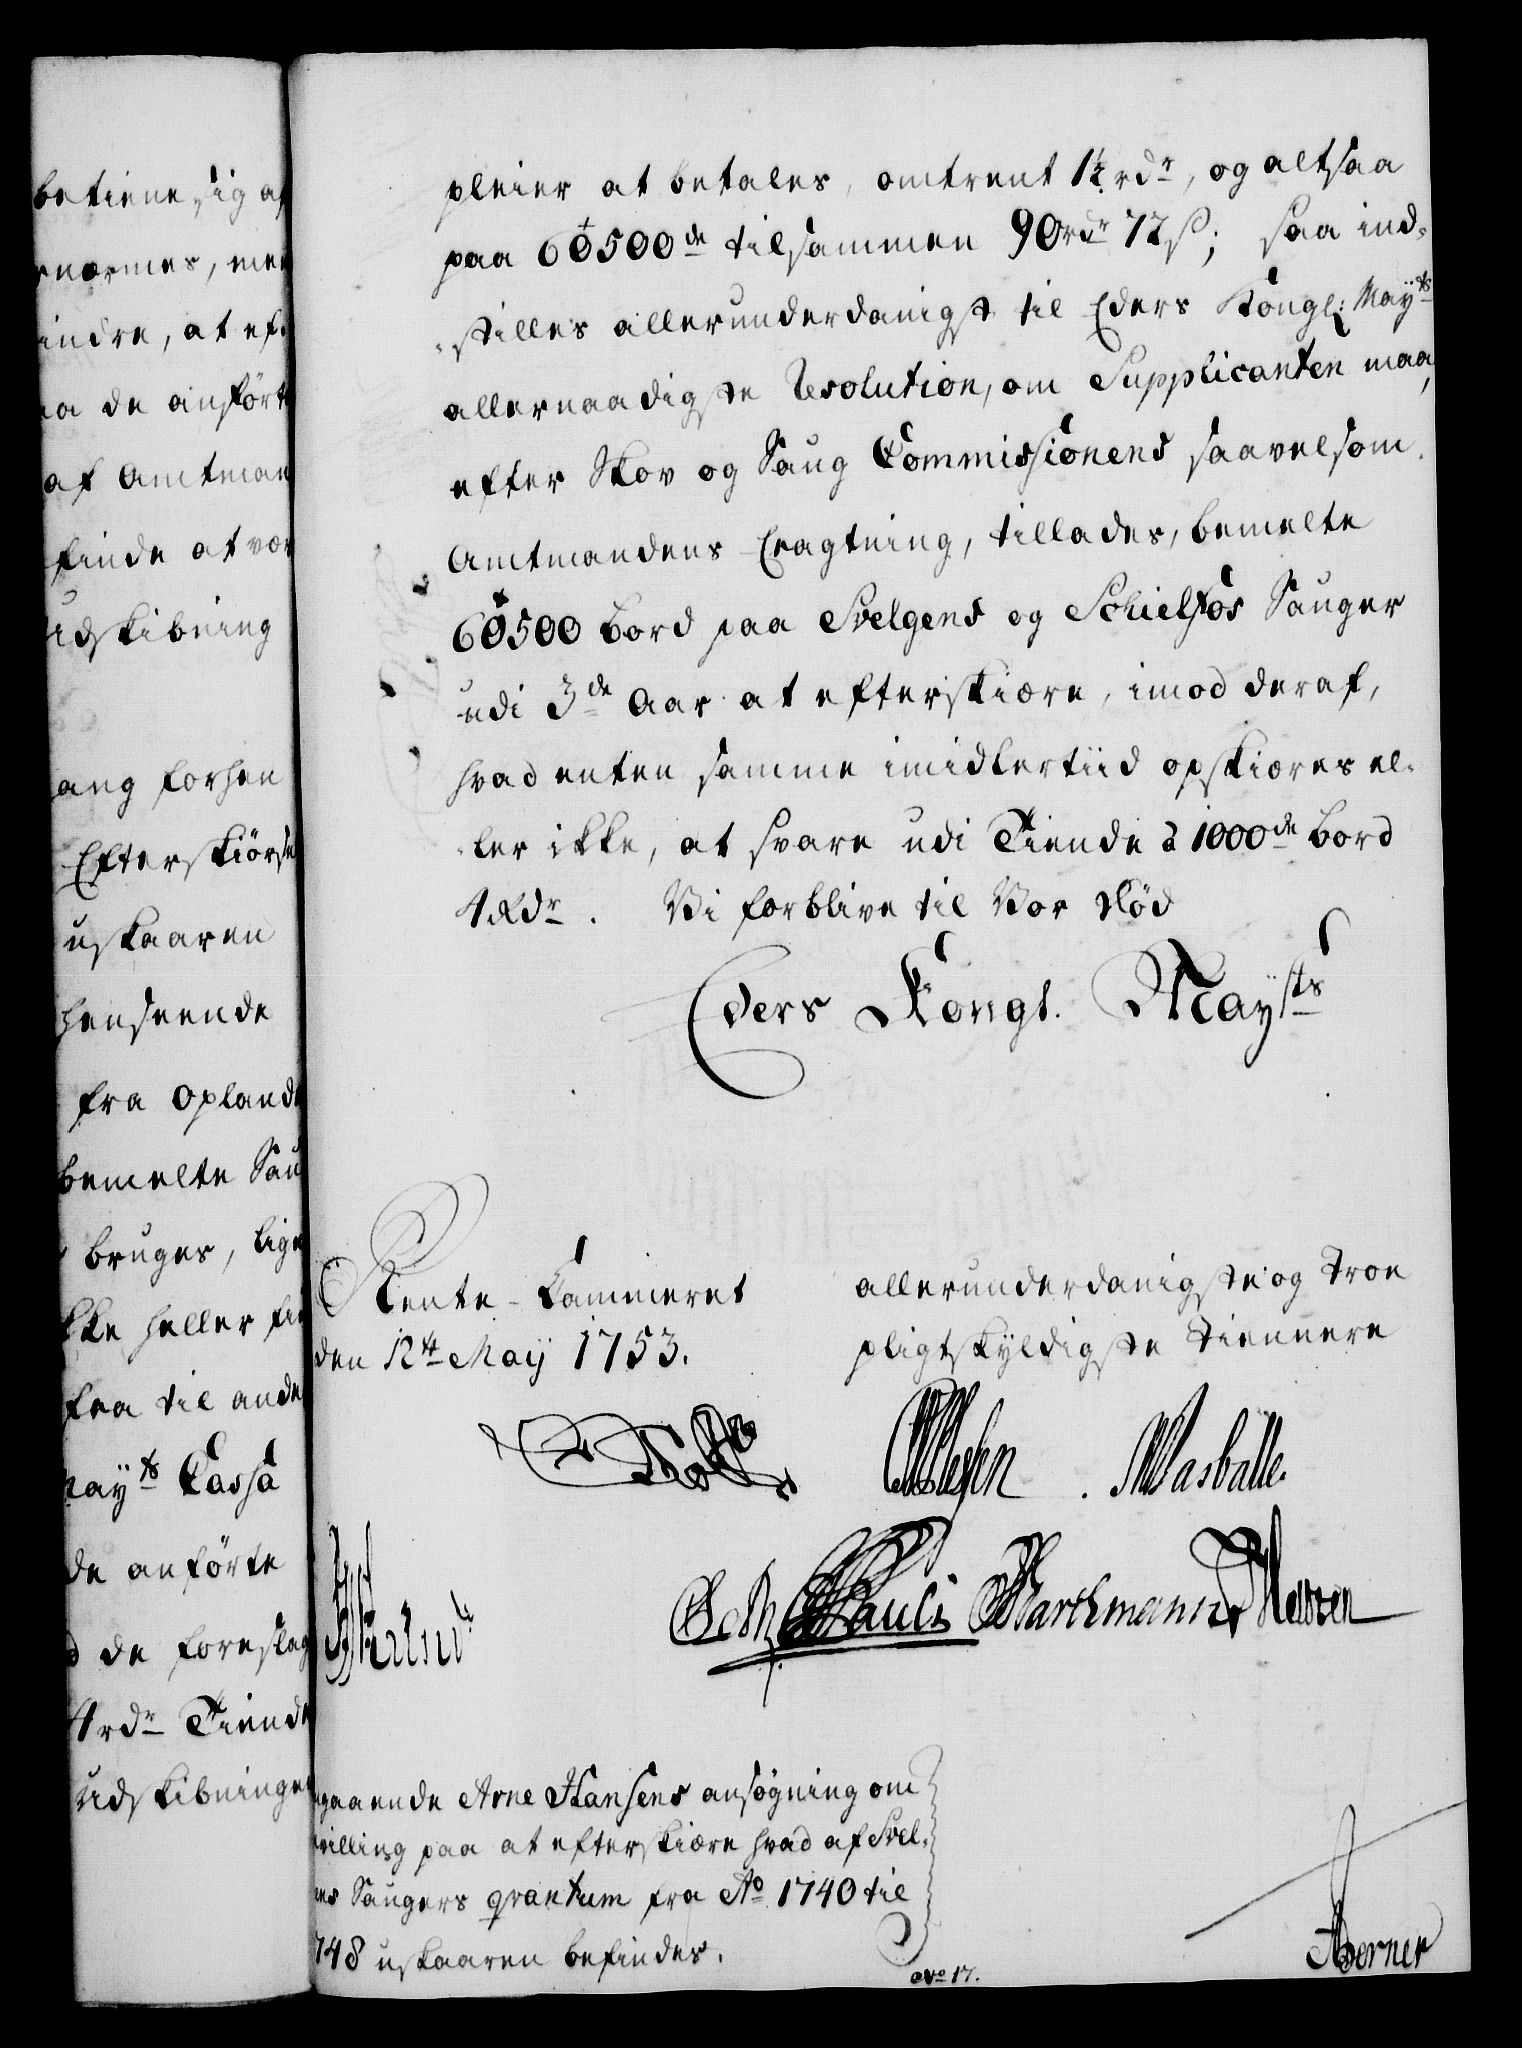 betiene sig af
nærmes, men
indre, at ef-
de anførte
af Amtman
finde at vær
udskibning
ang forhen
Efterskiørse
uskaaren
henseende
fra Oplande
bemelte Sau
bruges, lige
ikke heller fin
fra til ande
Mayts Cassa
de anførte
de foreslag
4 rdr Tiende
udskibningen
pleier at betales, omtrent 1½ rdr, og altsaa
paa 60500de tilsammen 90 rdr 72 s; saa ind-
stilles allerunderdanigst til Eders Kongl: Mayts
allernaadigste Resolution, om Supplicanten maa,
efter Skov og Saug Commissionens saavelsom
Amtmandens Eragtning, tillades, bemelte
60500 Bord paa Svelgens og Schielfos Sauger
udi 3de Aar at efterskiære, imod deraf,
hvad enten samme imidlertiid opskiæres el-
ler ikke, at svare udi Tiende à 1000de Bord
4 Rdr. Vi forblive til Vor Død
Eders Kongl. Maysts
Rente-Cammeret
den 12te Maij 1753.
allerunderdanigste og troe
pligtskyldigste Tiennere
Wasballe.
Pauli Barthmann
gaaende Arne Hansens ansøgning om
villing paa at efterskiære hvad af Svel-
ens Saugers qvantum fra Ao 1740 til
748 uskaaren befindes.
No 17.
Berner